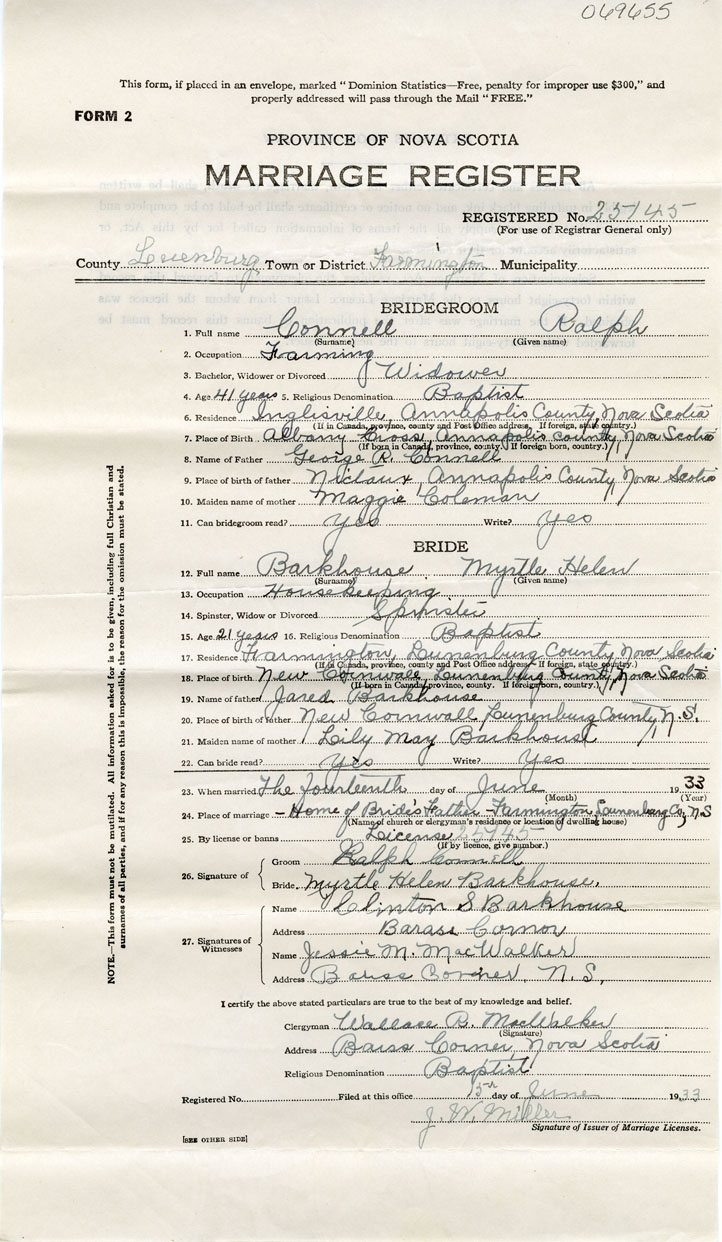 069655
This form, if placed in an envelope, marked "Dominion Statistics—Free, penalty for improper use $300," and
properly addressed will pass through the Mail "FREE."
FORM 2
PROVINCE OF NOVA SCOTIA
MARRIAGE REGISTER
REGISTERED No. 25145
(For use of Registrar General only)
County Lunenburg Town or District Farmington Municipality
BRIDEGROOM
1. Full name Connell Ralph
(Surname) (Given name)
2. Occupation Farming
3. Bachelor, Widower or Divorced Widower
4. Age 41 years 5. Religious Denomination Baptist
6. Residence Inglisville, Annapolis County, Nova Scotia
(If in Canada, province, county and Post Office address. If foreign, state country.)
7. Place of Birth Albany Cross, Annapolis County, Nova Scotia
(If born in Canada, province, county. If foreign born, country.)
8. Name of Father George R. Connell
9. Place of birth of father Nictaux, Annapolis County, Nova Scotia
10. Maiden name of mother Maggie Coleman
11. Can bridegroom read? yes Write? yes
BRIDE
12. Full name Barkhouse Myrtle Helen
(Surname) (Given name)
13. Occupation Housekeeping
14. Spinster, Widow or Divorced Spinster
15. Age 21 years 16. Religious Denomination Baptist
17. Residence Farmington, Lunenburg County Nova Scotia
(If in Canada, province, county and Post Office address. If foreign, state country.)
18. Place of birth New Cornwall Lunenburg County, Nova Scotia
(If born in Canada, province, county. If foreign born, country.)
19. Name of father Jared Barkhouse
20. Place of birth of father New Cornwall Lunenburg County, N.S.
21. Maiden name of mother Lily May Barkhouse
22. Can bride read? Yes Write? Yes
23. When married The fourteenth day of June 1933
(Month) (Year)
24. Place of marriage - Home of Bride's Father - Farmington, Lunenburg Co, N.S
(Name of church or clergyman's residence or location of dwelling house)
25. By license or banns License 25145
(If by licence, give number.)
26. Signature of
Groom Ralph Connell
Bride Myrtle Helen Barkhouse.
27. Signatures of Witnesses
Name Clinton S Barkhouse
Address Barss Cornor
Name Jessie M. MacWalker
Address Barss Corner, N.S.
I certify the above stated particulars are true to the best of my knowledge and belief.
Clergyman Wallace B. MacWalker
(Signature)
Address Barss Corner, Nova Scotia
Religious Denomination Baptist
Registered No. Filed at this office 15th day of June 1933
J. W. Miller
Signature of Issuer of Marriage Licenses.
[SEE OTHER SIDE]
NOTE.—This form must not be mutilated. All information asked for is to be given, including full Christian and
surnames of all parties, and if for any reason this is impossible, the reason for the omission must be stated.